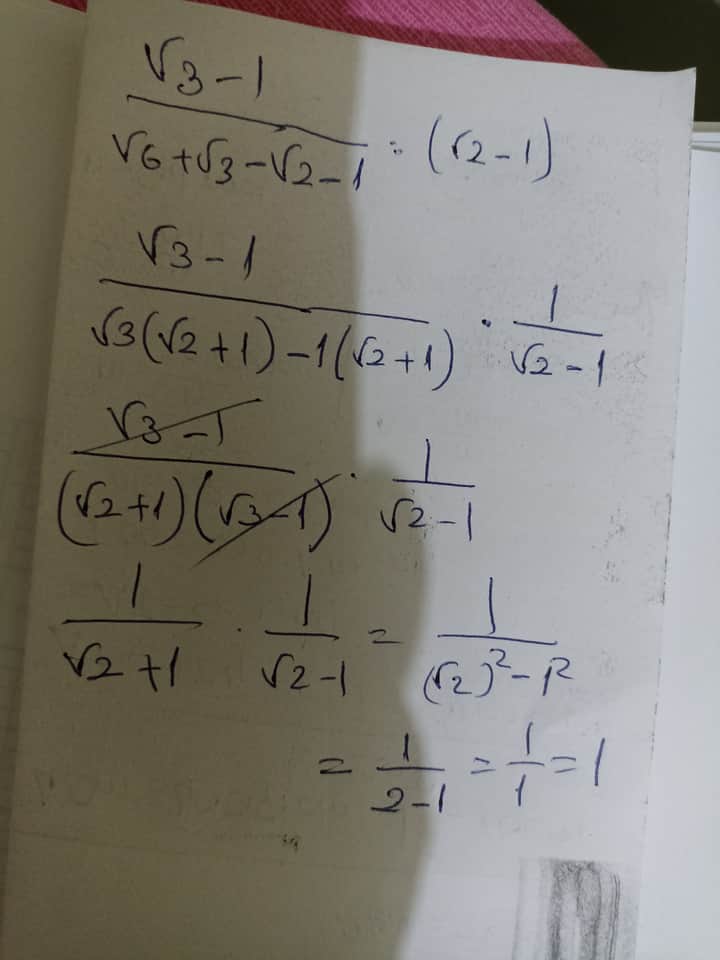 √3 - 1
√6 + √3 - √2 - 1 : (√2 - 1)
√3 - 1
√3(√2 + 1) - 1(√2 + 1) · 1
√2 - 1
√3 - 1
(√2 + 1)(√3 - 1) · 1
√2 - 1
1
√2 + 1 · 1
√2 - 1 = 1
(√2)² - 1²
= 1
2 - 1 = 1
1 = 1